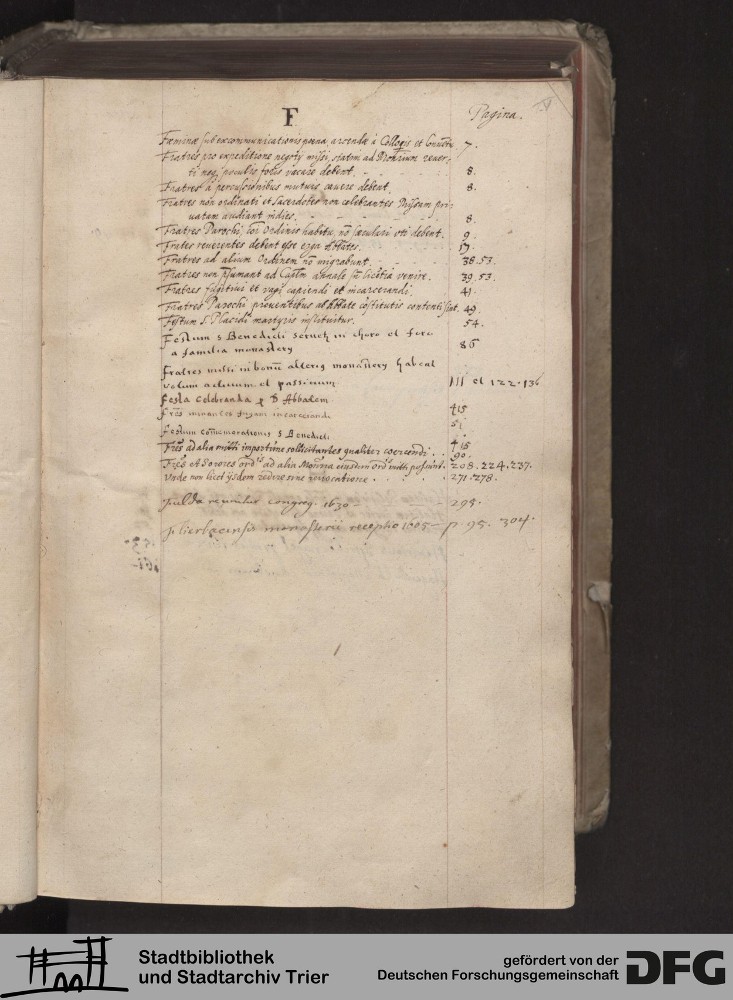 F
Pagina.
Fæminæ sub excommunicationis poena arcendæ à Collogijs et 7.
Fratres pro expeditione negotij missi, statim ad
ti neq; poculis focis vacare debent. 8.
Fratres à percussionibus mutuis cauere debent. 8.
Fratres non ordinati et Sacerdotes non celebrantes Missam pri-
uatam audiant indies. 8.
Fratres Parochi, sui Ordinis habitu, nō sæculari vti debent. 9.
Fratres reuerentes debent esse erga Abbates. 17.
Fratres ad alium Ordinem nō migrabunt. 38.53.
Fratres non p̄sumant ad Capłm annale sn̄ licētia venire. 39.53.
Fratres fugitiui et vagi capiendi et incarcerandi. 41.
Fratres Parochi prouentibus ab Abbate cōstitutis contenti sint. 49.
Festum S. Placidi martyris instituitur. 54.
Festum S Benedicti in choro et foro
a familia monastery 86
Fratres missi in bonū alterius monastery habent
votum actiuum et passiuum 111 et 122.136
Festa celebranda p D Abbatem 415
Fr̄es fugam incarcerandi 51
Festum com̄emorationis S Benedicti 415
Fr̄es ad alia mitti importune sollicitantes qualiter coercendi. 90.
Fr̄es et Sorores ord.is ad alia Mon̄ria eiusdem ord mitti possunt. 208.224.237.
Vnde non licet ijsdem redire sine reuocatione. 271.278.
Fulda vnitur congreg. 1630 - 295.
monasterii receptio - p. 95. 304.
Stadtbibliothek
und Stadtarchiv Trier
gefördert von der
Deutschen Forschungsgemeinschaft
DFG